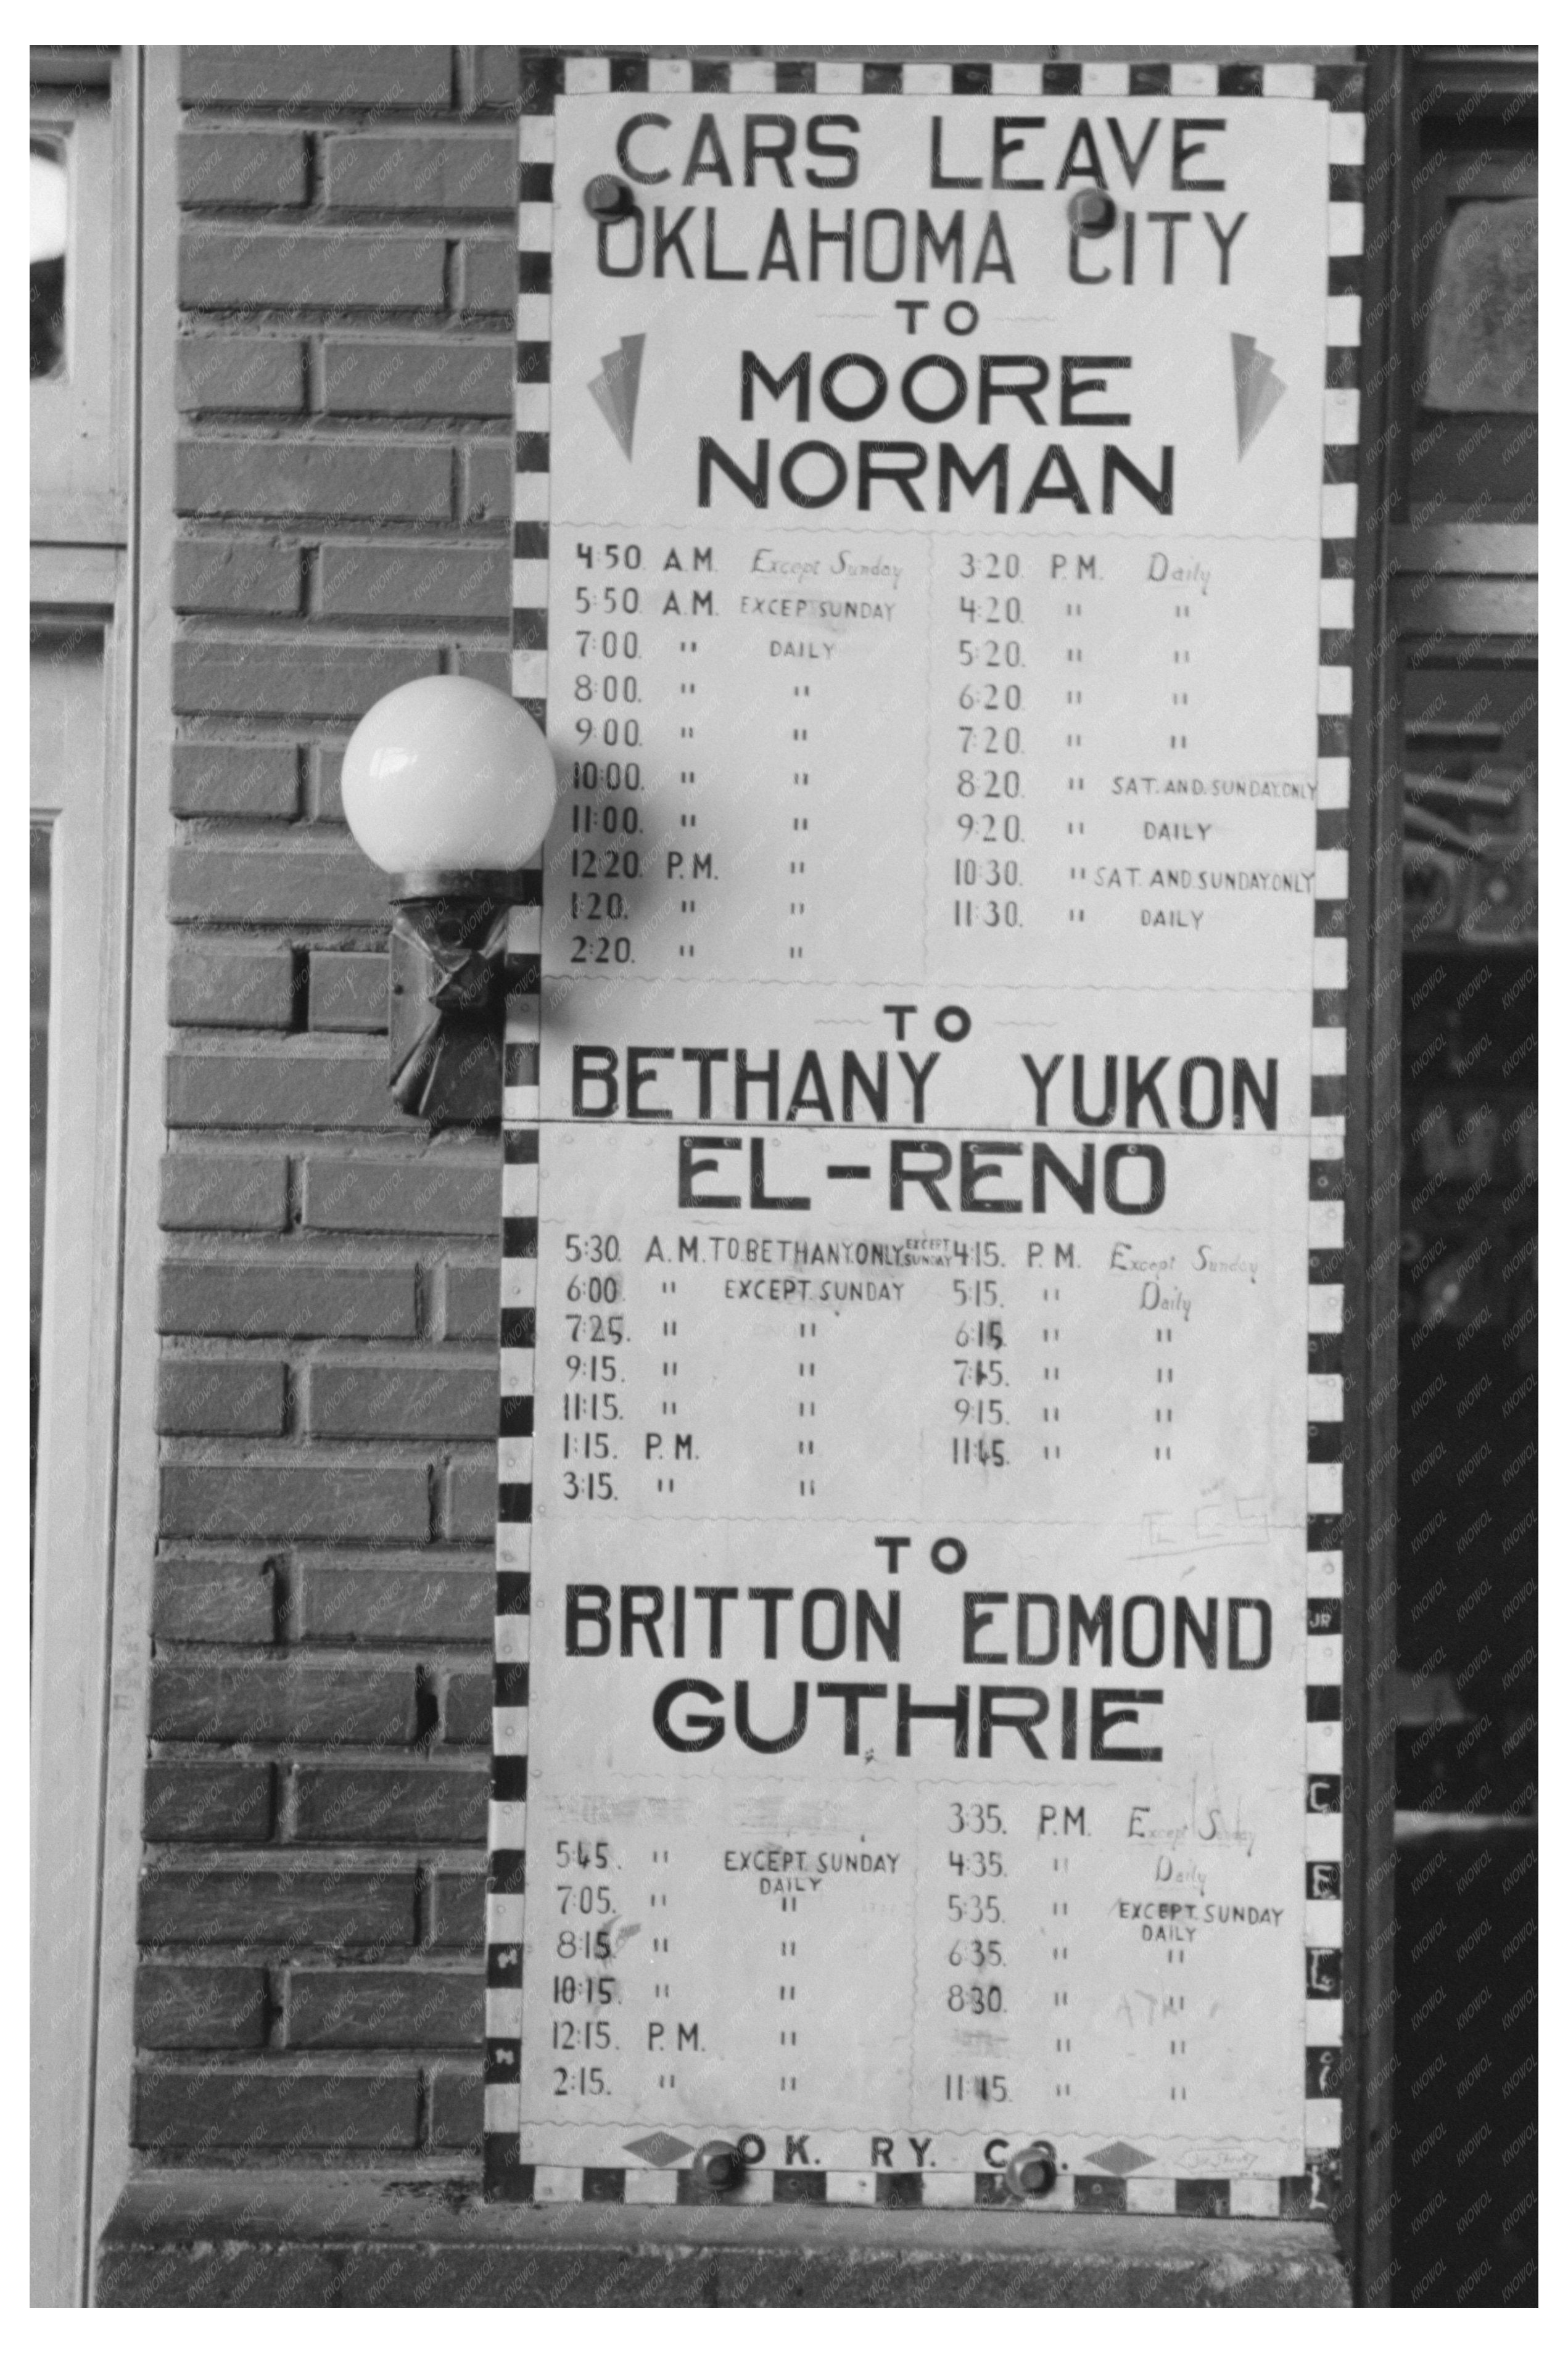 CARS LEAVE
OKLAHOMA CITY
TO
MOORE
NORMAN
4:50. A.M. Except Sunday
5:50 A.M. EXCEPT SUNDAY
7:00. " DAILY
8:00. " "
9:00. " "
10:00. " "
11:00. " "
12:20. P.M. "
1:20. " "
2:20. " "
3:20. P.M. Daily
4:20. " "
5:20. " "
6:20 " "
7:20. " "
8:20. " SAT. AND. SUNDAY. ONLY
9:20. " DAILY
10:30. " SAT. AND. SUNDAY. ONLY
11:30. " DAILY
TO
BETHANY YUKON
EL-RENO
5:30. A.M. TO. BETHANY. ONLY. EXCEPT SUNDAY
6:00. " EXCEPT. SUNDAY
7:25. " "
9:15. " "
11:15. " "
1:15. P.M. "
3:15. " "
4:15. P.M. Except Sunday
5:15. " Daily
6:15. " "
7:15. " "
9:15. " "
11:45. " "
TO
BRITTON EDMOND
GUTHRIE
5:45. " EXCEPT. SUNDAY
DAILY
7:05. " "
8:15 " "
10:15. " "
12:15. P.M. "
2:15. " "
3:35. P.M. Except Sunday
4:35. " Daily
5:35. " EXCEPT. SUNDAY
DAILY
6:35. " "
8:30. " "
" "
11:45. " "
OK. RY. CO.
JR
KNOWOL